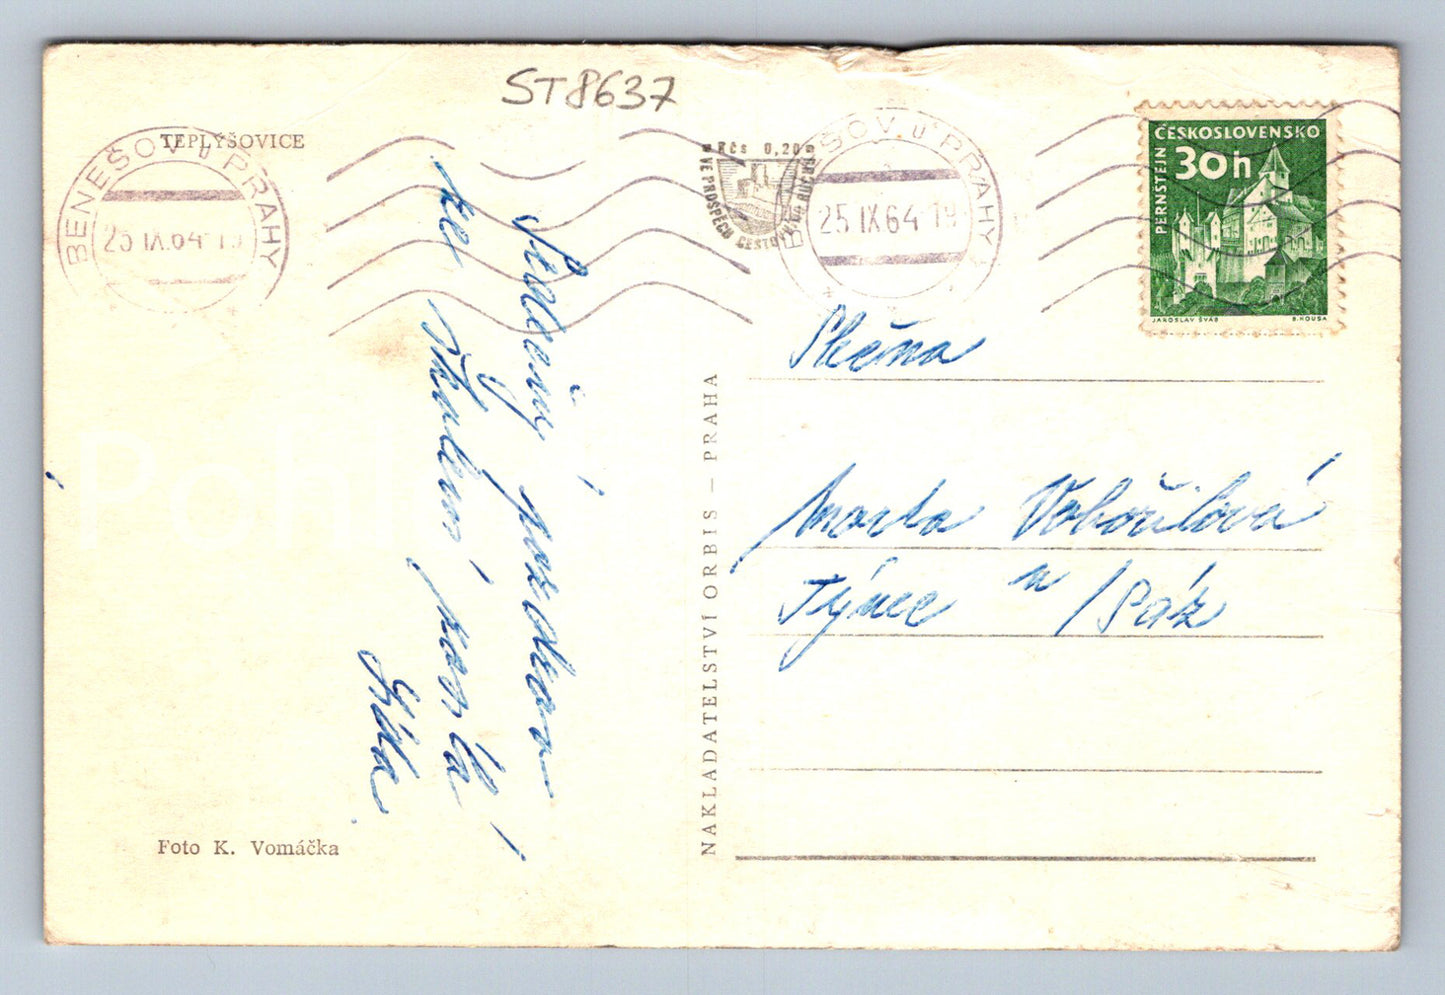 ST8637
TEPLÝŠOVICE
BENEŠOV U PRAHY
25 IX.64-19
Kčs 0,20
VE PROSPĚCH CESTOV
BENEŠOV U PRAHY
25 IX.64-19
ČESKOSLOVENSKO
30h
PERNŠTEJN
JAROSLAV ŠVÁB
B. HOUSA
Srdečný pozdrav
ze
Jitka
Foto K. Vomáčka
NAKLADATELSTVÍ ORBIS — PRAHA
Slečna
Marta Vobořilová
Týnec n/Sáz